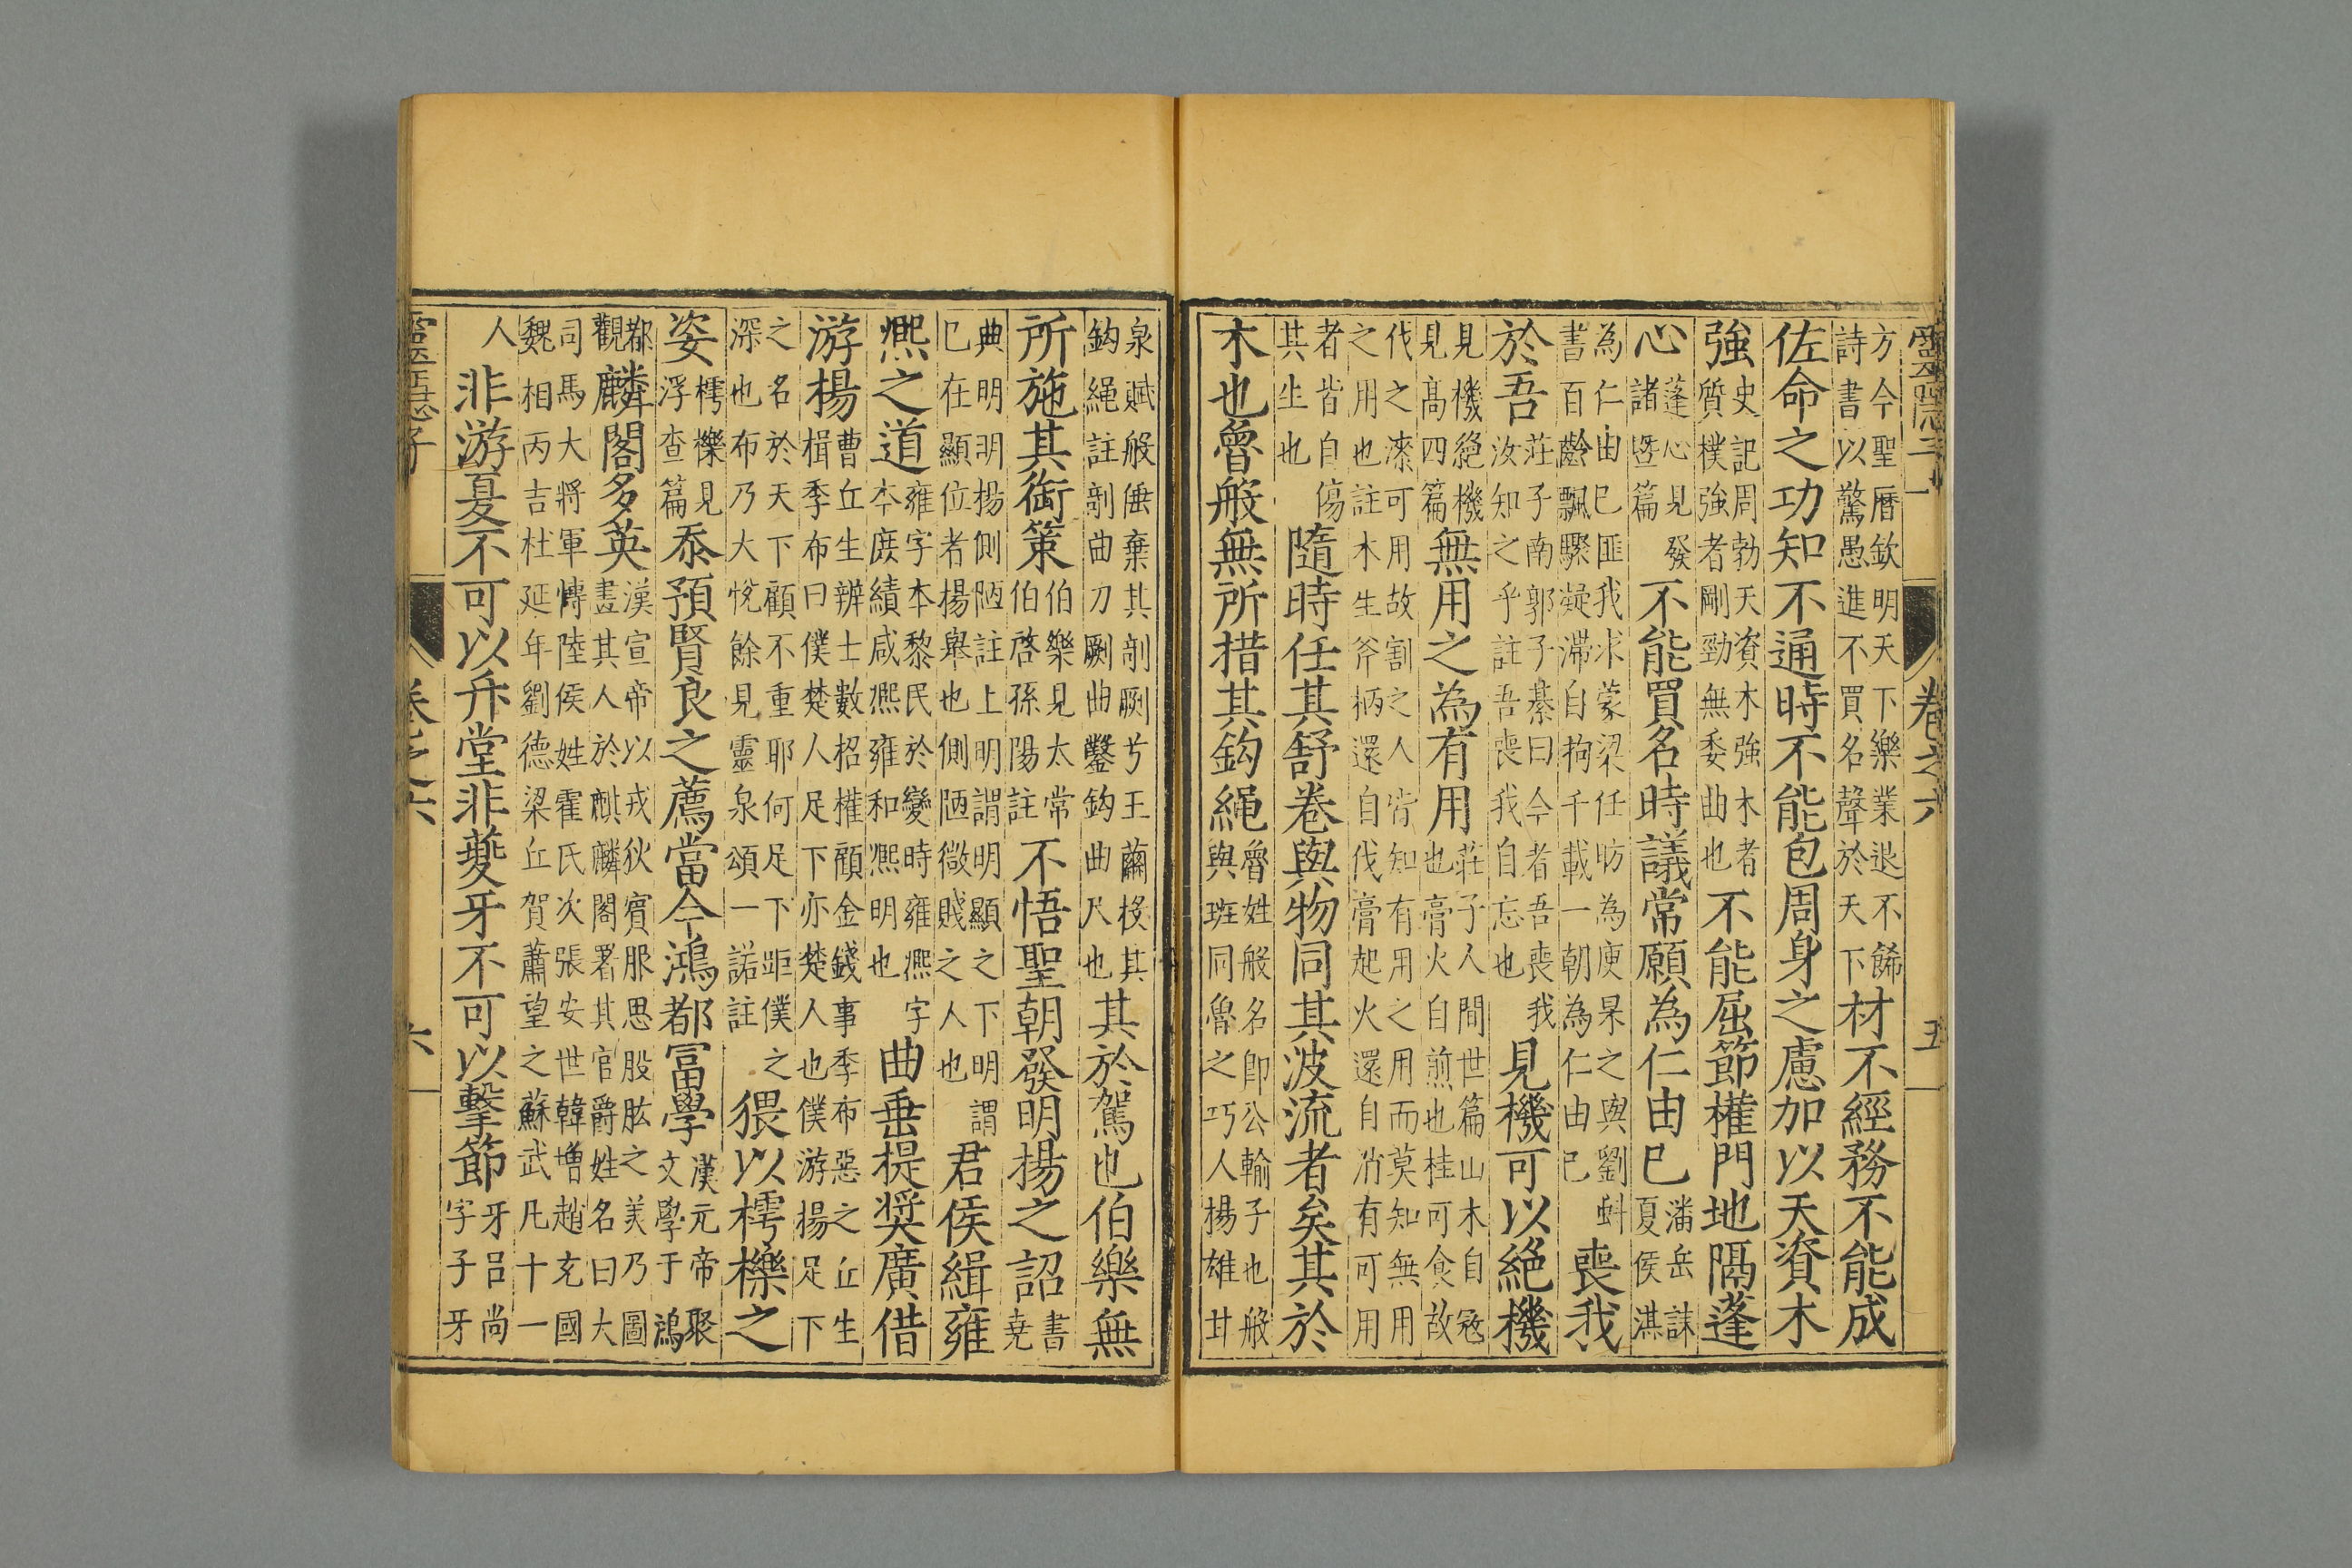 方今聖曆欽明天下樂業退不餙
詩書以驚愚進不買名聲於天下材不經務不能成
佐命之功知不通時不能包周身之慮加以天資木
強史記周勃天資木強木者
質樸強者剛勁無委曲也不能屈節權門地隔蓬
心蓬心見發
諸暨篇不能買名時議常願為仁由巳潘岳誄
夏侯湛
為仁由巳匪我求蒙梁任昉為庾杲之與劉蚪
書百齡飄驟凝滯自拘千載一朝為仁由巳喪我
於吾莊子南郭子綦曰今者吾喪我
汝知之乎註吾喪我自忘也見機可以絕機
見機絕機
見高四篇無用之為有用莊子人間世篇山木自冦
也膏火自煎也桂可食故
伐之漆可用故割之人皆知有用之用而莫知無用
之用也註木生斧柄還自伐膏起火還自消有可用
者皆自傷
其生也隨時任其舒卷與物同其波流者矣其於
木也魯般無所措其鈎繩魯姓般名即公輸子也般
與班同魯之巧人揚雄甘
泉賦般倕棄其剞劂兮王繭棳其
鈎繩註剞曲刀劂曲鑿鈎曲尺也其於駕也伯樂無
所施其銜策伯樂見太常
伯啓孫陽註不悟聖朝發明揚之詔書
堯
典明明揚側陋註上明謂明顯之下明謂
巳在顯位者楊舉也側陋微賤之人也君侯緝雍
熈之道雍字本黎民於變時雍熈字
本庶績咸熈雍和熈明也曲垂提奬廣借
游楊曹丘生辨士數招權顧金錢事季布惡之丘生
楫季布曰僕楚人足下亦楚人也僕游揚足下
之名於天下顧不重耶何足下距僕之
深也布乃大悅餘見靈泉頌一諾註猥以樗櫟之
姿樗櫟見
浮查篇忝預賢良之薦當今鴻都富學漢元帝聚
文學于鴻
都
觀麟閣多英漢宣帝以戎狄賓服思股肱之美乃圖
畫其人於麒麟閣署其官爵姓名曰大
司馬大將軍博陸侯姓霍氏次張安世韓增趙充國
魏相丙吉杜延年劉德梁丘賀蕭望之蘇武凡十一
人非游夏不可以升堂非夔牙不可以擊節牙呂尚
字子牙
卷之六
五
卷之六
六